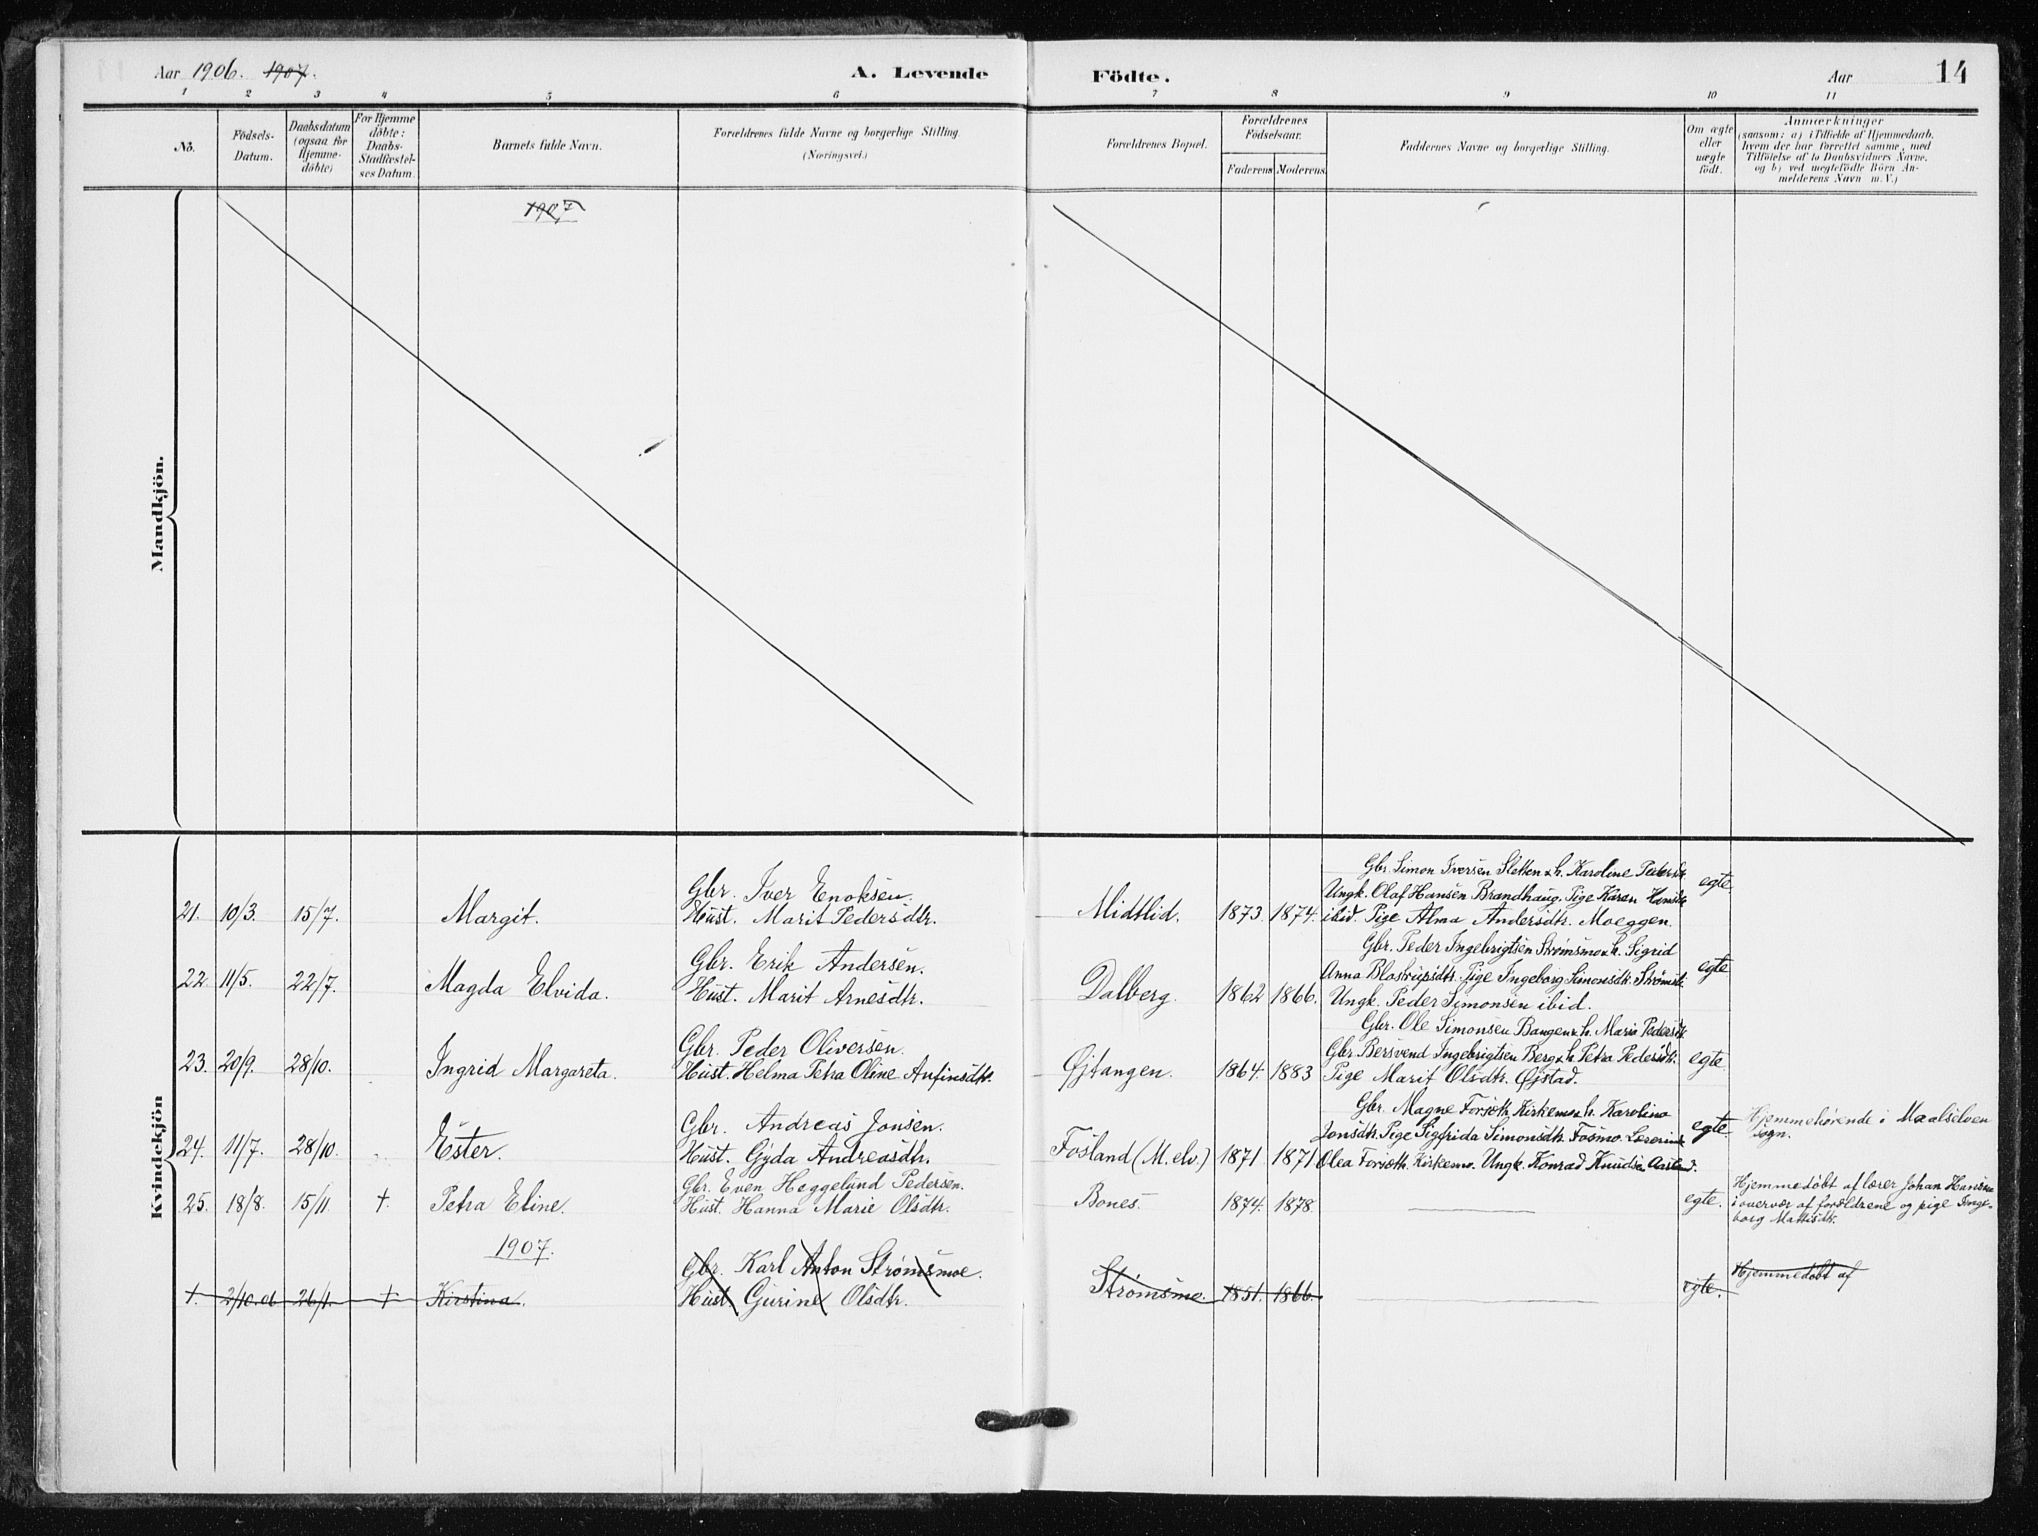 Aar 1906. 1907.
A. Levende Födte.
Aar
14
1 2 3 4 5 6 7 8 9 10 11
No.
Födsels-
Datum.
Daabsdatum
(ogsaa for
Hjemme-
døbte)
For Hjemme
døbte:
Daabs-
Stadfæstel-
ses Datum
Barnets fulde Navn.
Forældrenes fulde Navne og borgerlige Stilling.
(Næringsvei.)
Forældrenes Bopæl.
Forældrenes
Födselsaar.
Faderens Moderens
Faddernes Navne og borgerlige Stilling.
Om ægte
eller
uægte
födt.
Anmærkninger
(saasom: a) i Tilfælde af Hjemmedaab,
hvem der har forrettet samme, med
Tilföielse af to Daabsvidners Navne.
og b) ved uægtefödte Börn An-
melderens Navn m. V.)
Mandkjön.
1907
Kvindekjön
21. 10/3. 15/7. Margit.
Gbr. Iver Enoksen.
Hust. Marit Pedersdtr.
Midtlid. 1873. 1874.
Gbr. Simon Iversen Sletten & h. Karoline Pedersdtr.
Ungk. Olaf Hansen Brandhaug. Pige Karen Hansdtr.
ibid. Pige Alma Andersdtr. Moeggen.
egte.
22. 11/5. 22/7. Magda Elvida.
Gbr. Erik Andersen.
Hust. Marit Arnesdtr.
Dalberg. 1862 1866.
Gbr. Peder Ingebrigtsen Strømsmo & h. Sigrid
Anna Blostrupsdtr. Pige Ingeborg Simonsdtr. Strømsli.
Ungk. Peder Simonsen ibid.
egte
23. 20/9. 28/10. Ingrid Margareta.
Gbr. Peder Oliversen.
Hust. Helma Petra Oline Anfinsdtr.
Øjtangen. 1864. 1883
Gbr. Ole Simonsen Bangen & h. Marie Pedersdtr.
Gbr. Bersvend Ingebrigtsen Berg & h. Petra Pedersdtr.
Pige Marit Olsdtr. Øjstad.
egte.
24. 11/7. 28/10. Ester.
Gbr. Andreas Jonsen.
Hust. Gyda Andreasdtr.
Fosland (M. elv.) 1871 1871
Gbr. Magne Forseth Kirkemo & h. Karolina
Jonsdtr. Pige Sigfrida Simonsdtr. Fosmo. Lærerinde
Olea Forseth. Kirkemo. Ungk. Konrad Knudsen Aasland.
egte.
Hjemmehørende i Maalselven
sogn.
25. 18/8. 15/11. †. Petra Eline.
Gbr. Even Heggelund Pedersen.
Hust. Hanna Marie Olsdtr.
Bones. 1874. 1878.
egte.
Hjemmedøbt af lærer Johan Hansen
i overvær af forældrene og pige Inge-
borg Mattisdtr.
1907.
1. 2/10.06 26/1. † Kirstina.
Gbr. Karl Anton Strømsmoe.
Hust Gurine Olsdtr.
Strømsmo. 1851. 1866.
egte.
Hjemmedøbt af